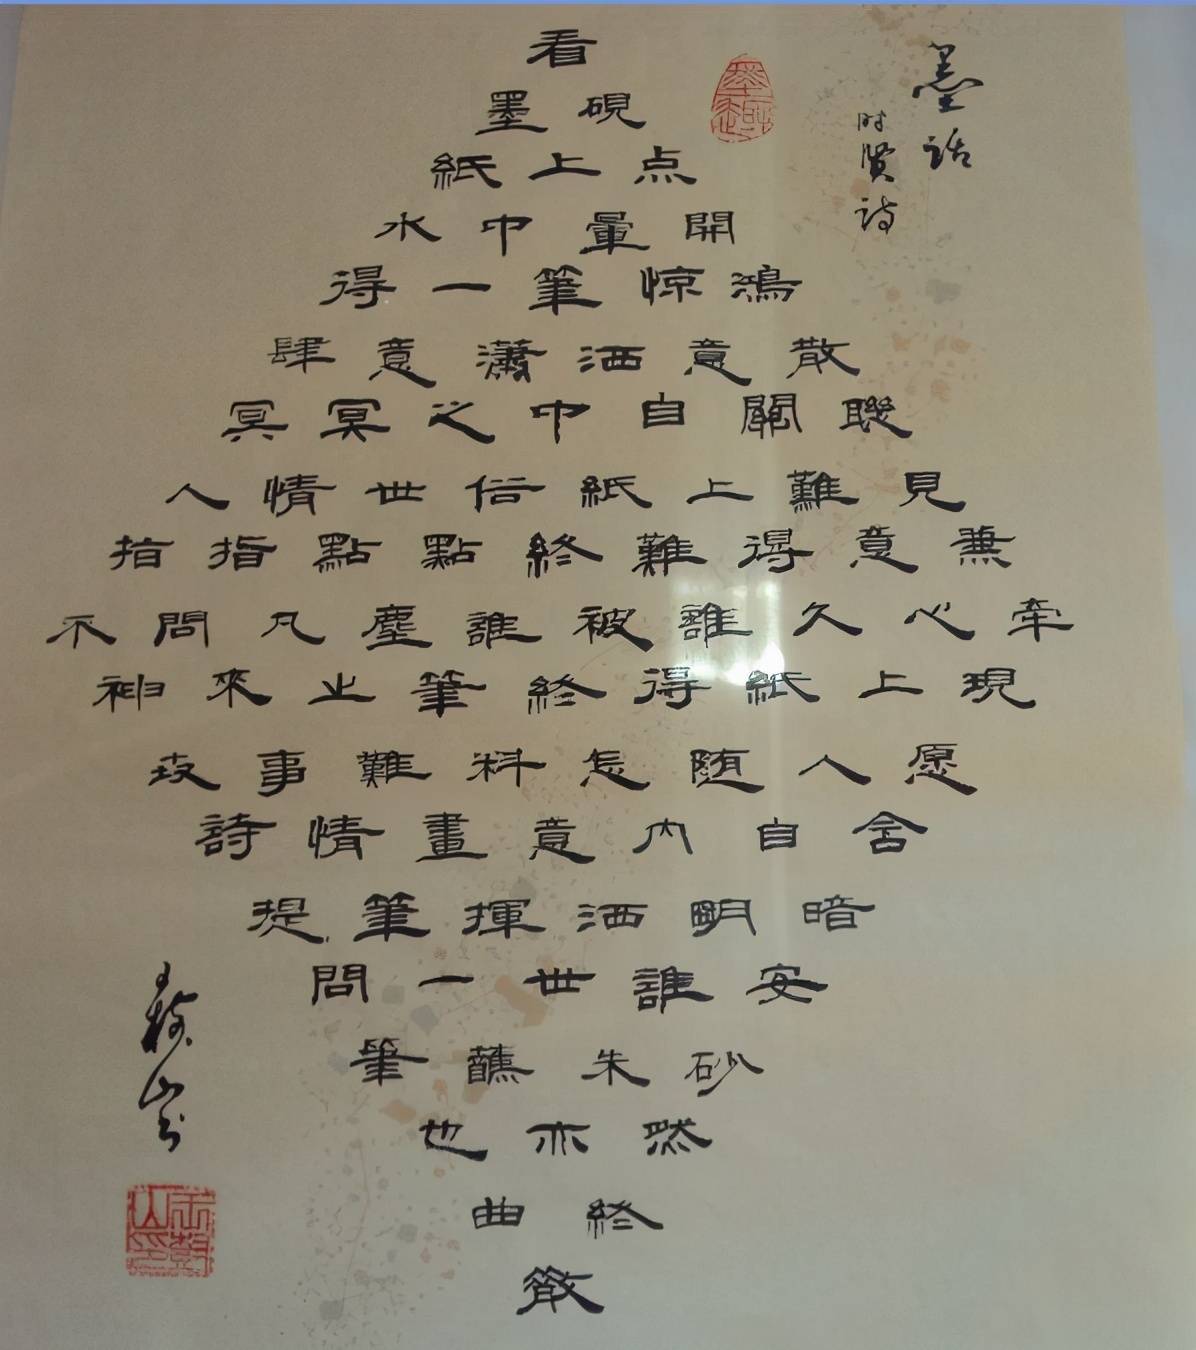 墨話
时贤诗
看
墨硯
紙上点
水中暈開
得一筆惊鴻
肆意瀟洒意散
冥冥之中自關聯
人情世俗紙上難見
指指點點終難得意兼
不問凡塵誰被誰久心牽
神來止筆終得紙上現
故事難料怎随人愿
詩情畫意內自含
提筆揮洒明暗
問一世誰安
筆蘸朱砂
也亦然
曲終
散